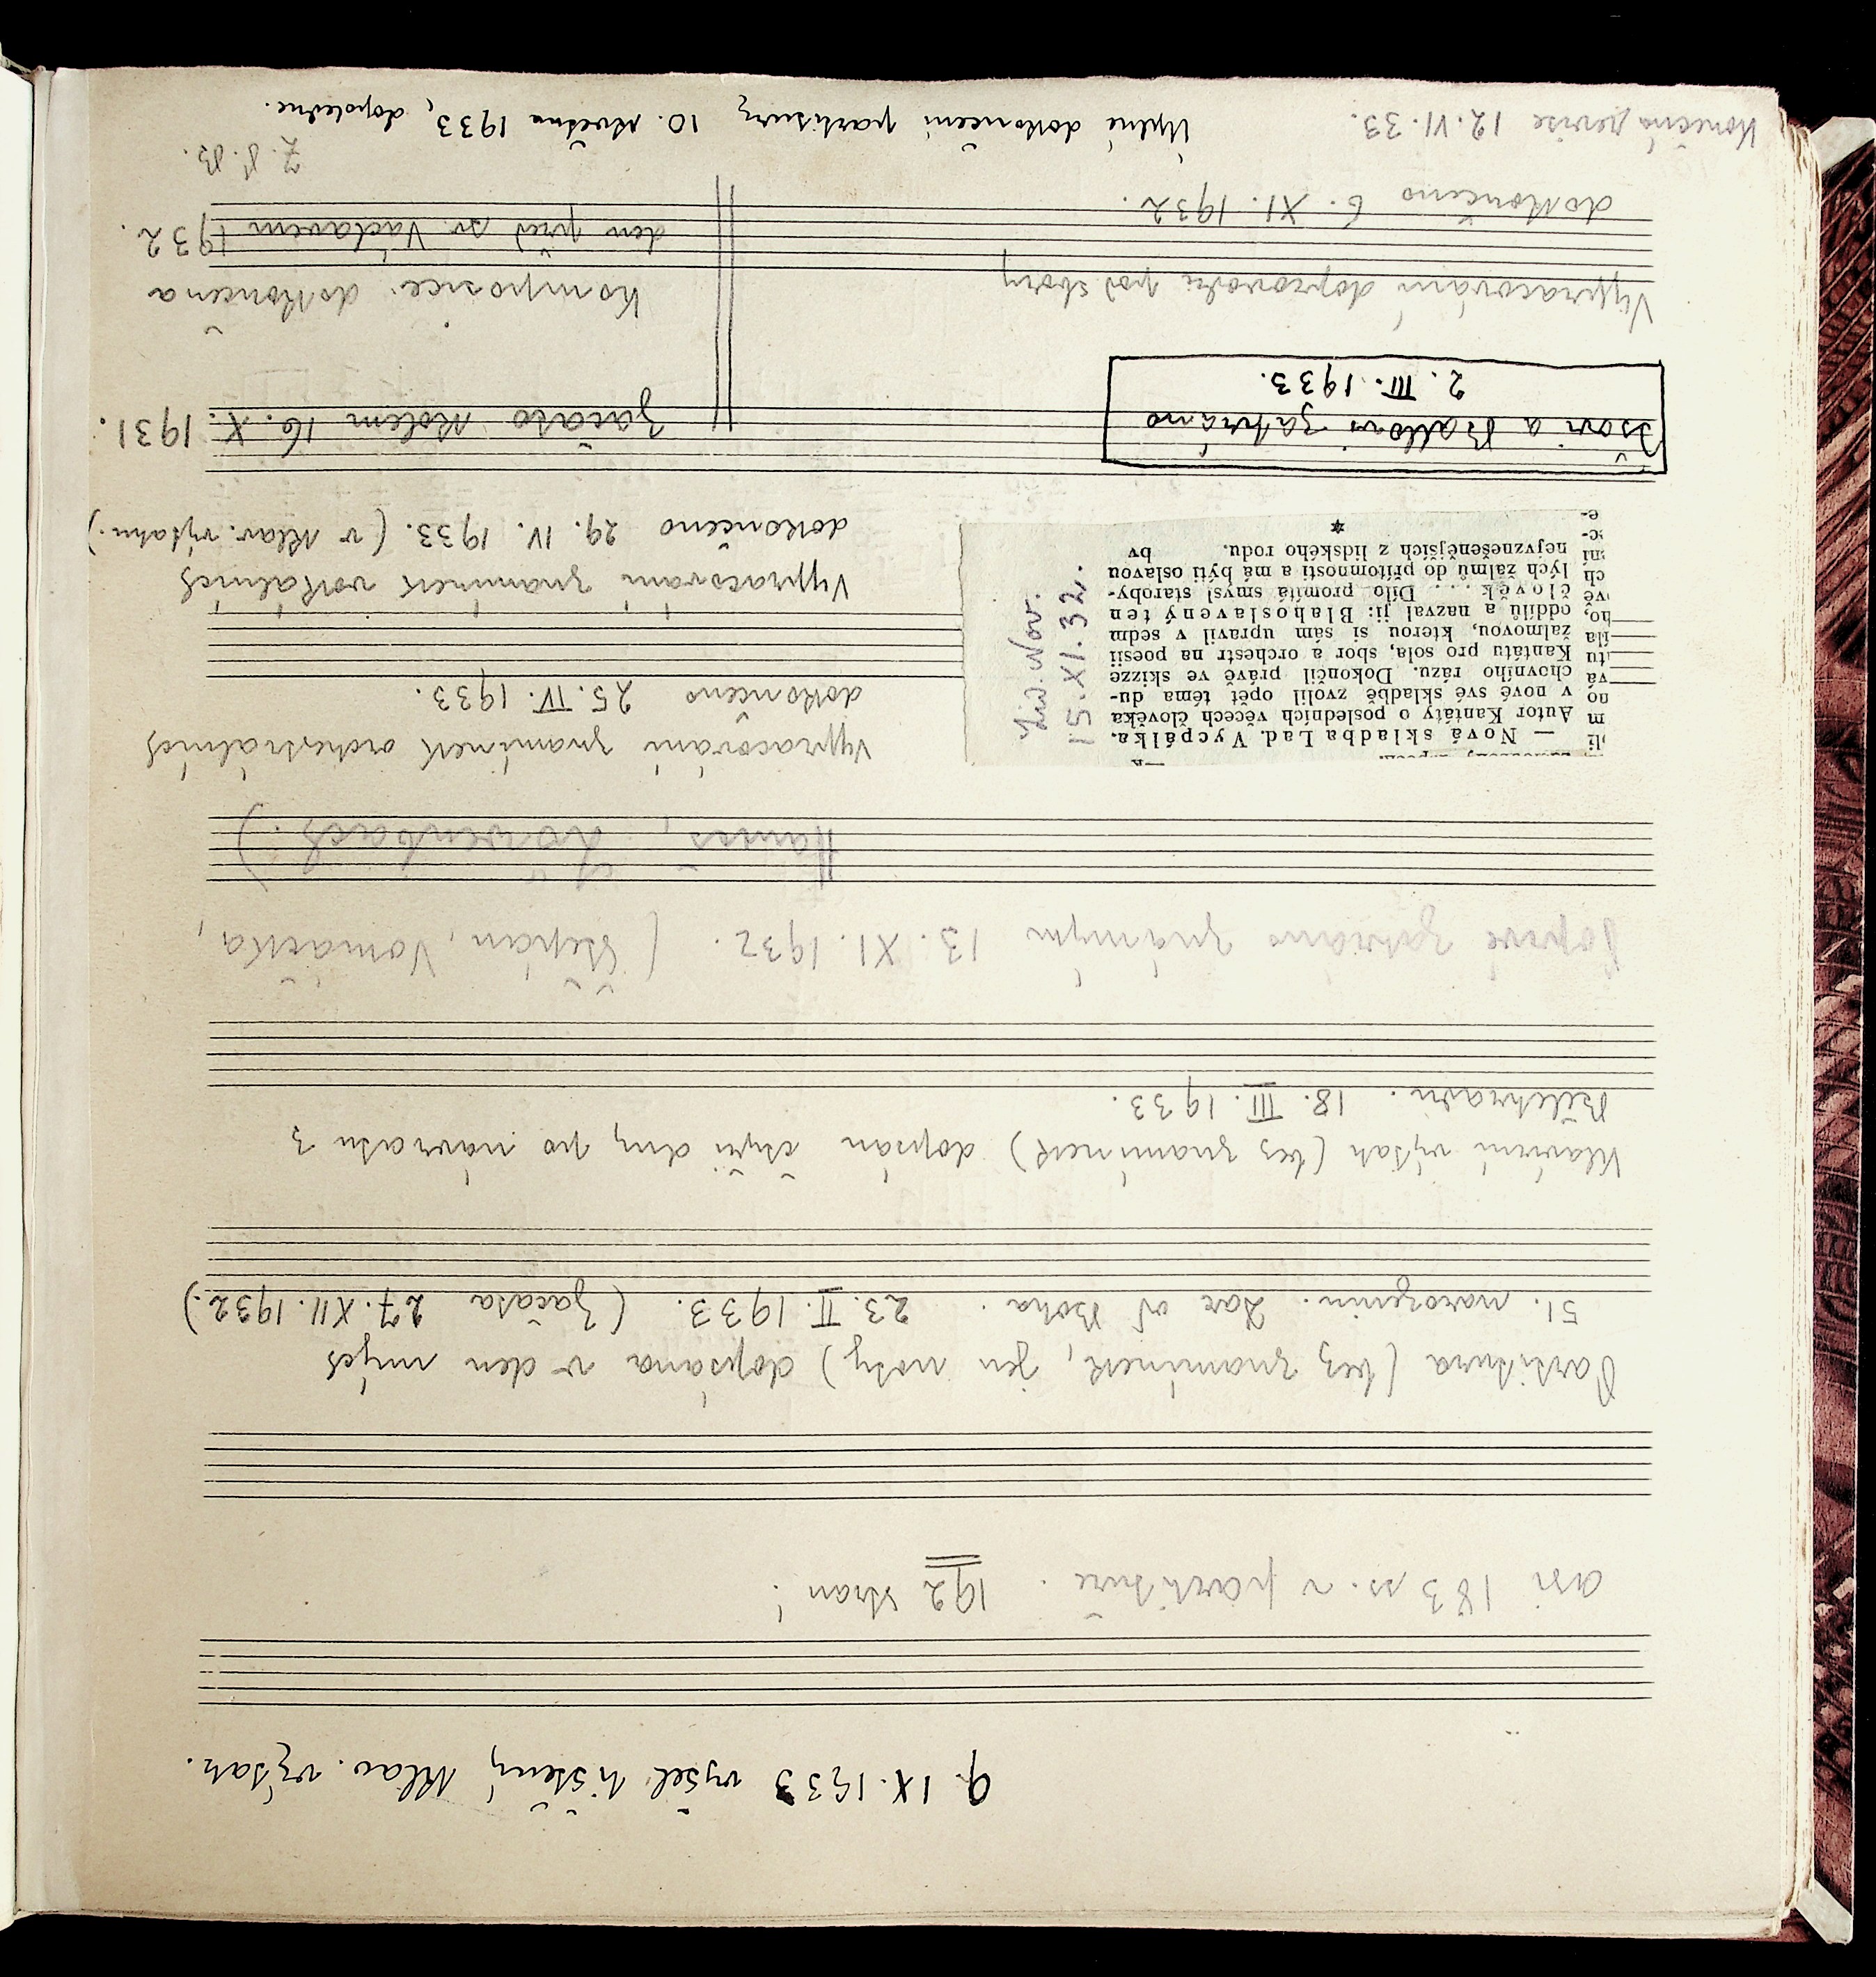 9. IX. 1933 vyšel tištěný klav. výtah.
asi 183 ss. v partituře. 192 stran!
Partitura (bez znamínek, jen noty) dopsána v den mých
51. narozenin. Dar od Boha. 23. II. 1933. (Začata 27. XII. 1932.)
Klavírní výtah (bez znamínek) dopsán čtyři dny po návratu z
Bělehradu. 18. III. 1933.
Poprvé zahráno známým 13. XI. 1932. (Štěpán, Vomáčka,
Löwenbach.)
—k
oli
m
no
vá
tu
íla
ho,
vě
ch
ní
ec-
e-
— Nová skladba Lad. Vycpálka.
Autor Kantáty o posledních věcech člověka
v nové své skladbě zvolil opět téma du-
chovního rázu. Dokončil právě ve skizze
Kantátu pro sola, sbor a orchestr na poesii
žalmovou, kterou si sám upravil v sedm
oddílů a nazval ji: Blahoslavený ten
člověk... Dílo promítá smysl staroby-
lých žalmů do přítomnosti a má býti oslavou
nejvznešenějších z lidského rodu. bv
*
Lid. Nov.
15. XI. 32.
Vypracování znamínek orchestrálních
dokončeno 25. IV. 1933.
Vypracování znamínek vokálních
dokončeno 29. IV. 1933. (v klav. výtahu.)
a Ballovi zahráno
2. III. 1933.
Začato kolem 16. X. 1931.
Vypracování doprovodu pod sbory
dokončeno 6. XI. 1932.
Komposice dokončena
den před sv. Václavem 1932.
Z. P. B.
Konečná revise 12. VI. 33.
Úplné dokončení partitury 10. května 1933, dopoledne.